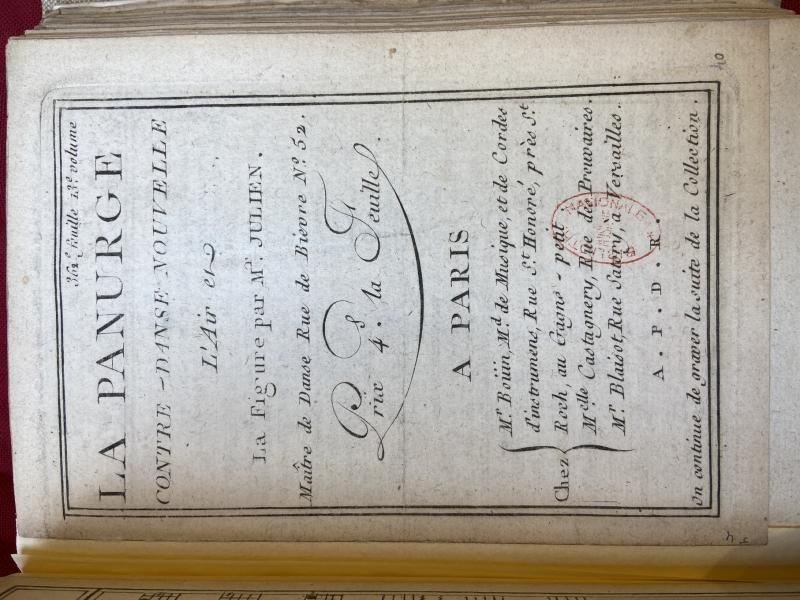 362e feuille 13e volume
40
LA PANURGE
CONTRE-DANSE-NOUVELLE
L'Air et
La Figure par Mr. JULIEN.
Maître de Danse Rue de Bievre No. 52.
Prix 4s. la Feuille.
A PARIS
Chez
Mr. Bouin, Md. de Musique, et de Cordes
d'instrumens, Rue St. Honoré, près St.
Roch, au Gagne-petit
Melle Castagnery, Rue des Prouvaires.
Mr. Blaisot, Rue Satory, à Versailles.
A. P. D. R.
On continue de graver la suite de la Collection.
NATIONALE